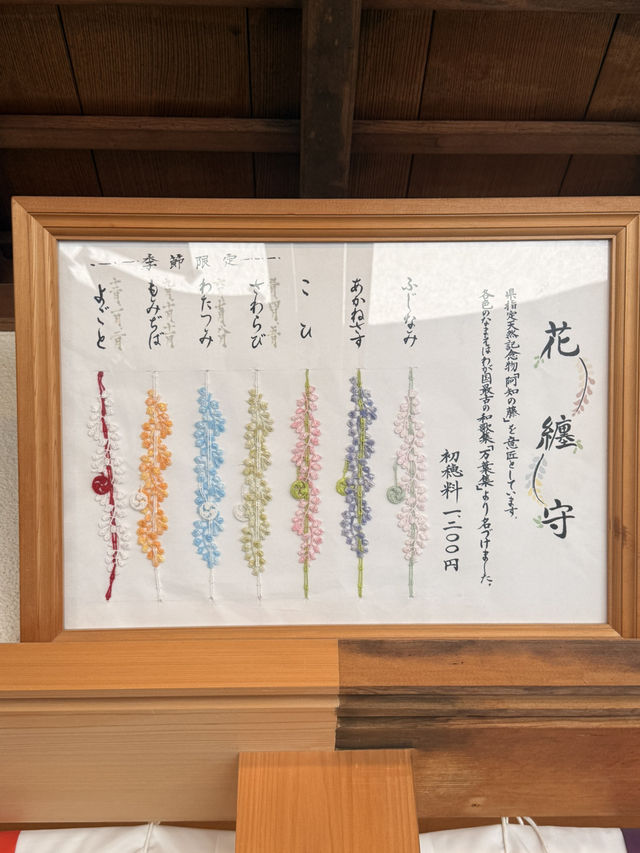 花纏守
県指定天然記念物「阿知の藤」を意匠としています。
各色のなまえはわが国最古の和歌集「万葉集」より名づけました。
初穂料 一、二〇〇円
ふじなみ
あかねさす
こひ
季節限定
さわらび
わたつみ
もみぢば
よごと